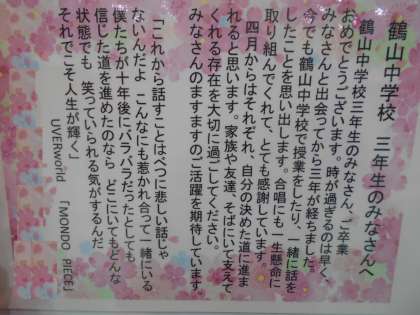 鶴山中学校 三年生のみなさんへ
鶴山中学校三年生のみなさん、ご卒業
おめでとうございます。時が過ぎるのは早く、
みなさんと出会ってから三年が経ちました。
今でも鶴山中学校で授業をしたり、一緒に話を
したことを思い出します。合唱にも一生懸命に
取り組んでくれて、とても感謝しています。
四月からはそれぞれ、自分の決めた道に進ま
れると思います。家族や友達、そばにいて支えて
くれる存在を大切に過ごしてください。
みなさんのますますのご活躍を期待しています。
「これから話すことはべつに悲しい話じゃ
ないんだよ こんなにも惹かれ合って一緒にいる
僕たちが十年後にバラバラだったとしても
信じた道を進めたのなら どこにいてもどんな
状態でも 笑っていられる気がするんだ
それでこそ人生が輝く」
UVERworld 「MONDO PIECE」